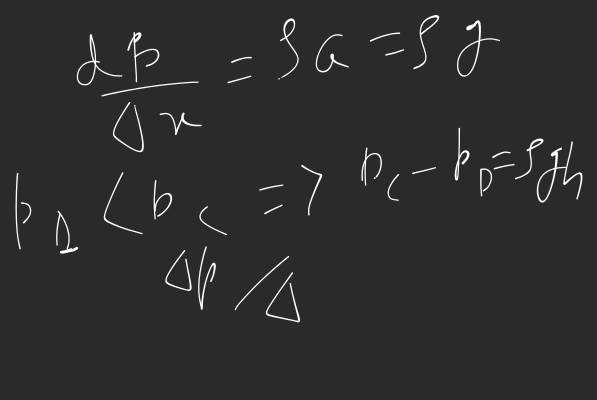 dp/Δx = ρa = ρg
p_D < p_C => p_C - p_D = ρgh
Δp/Δ